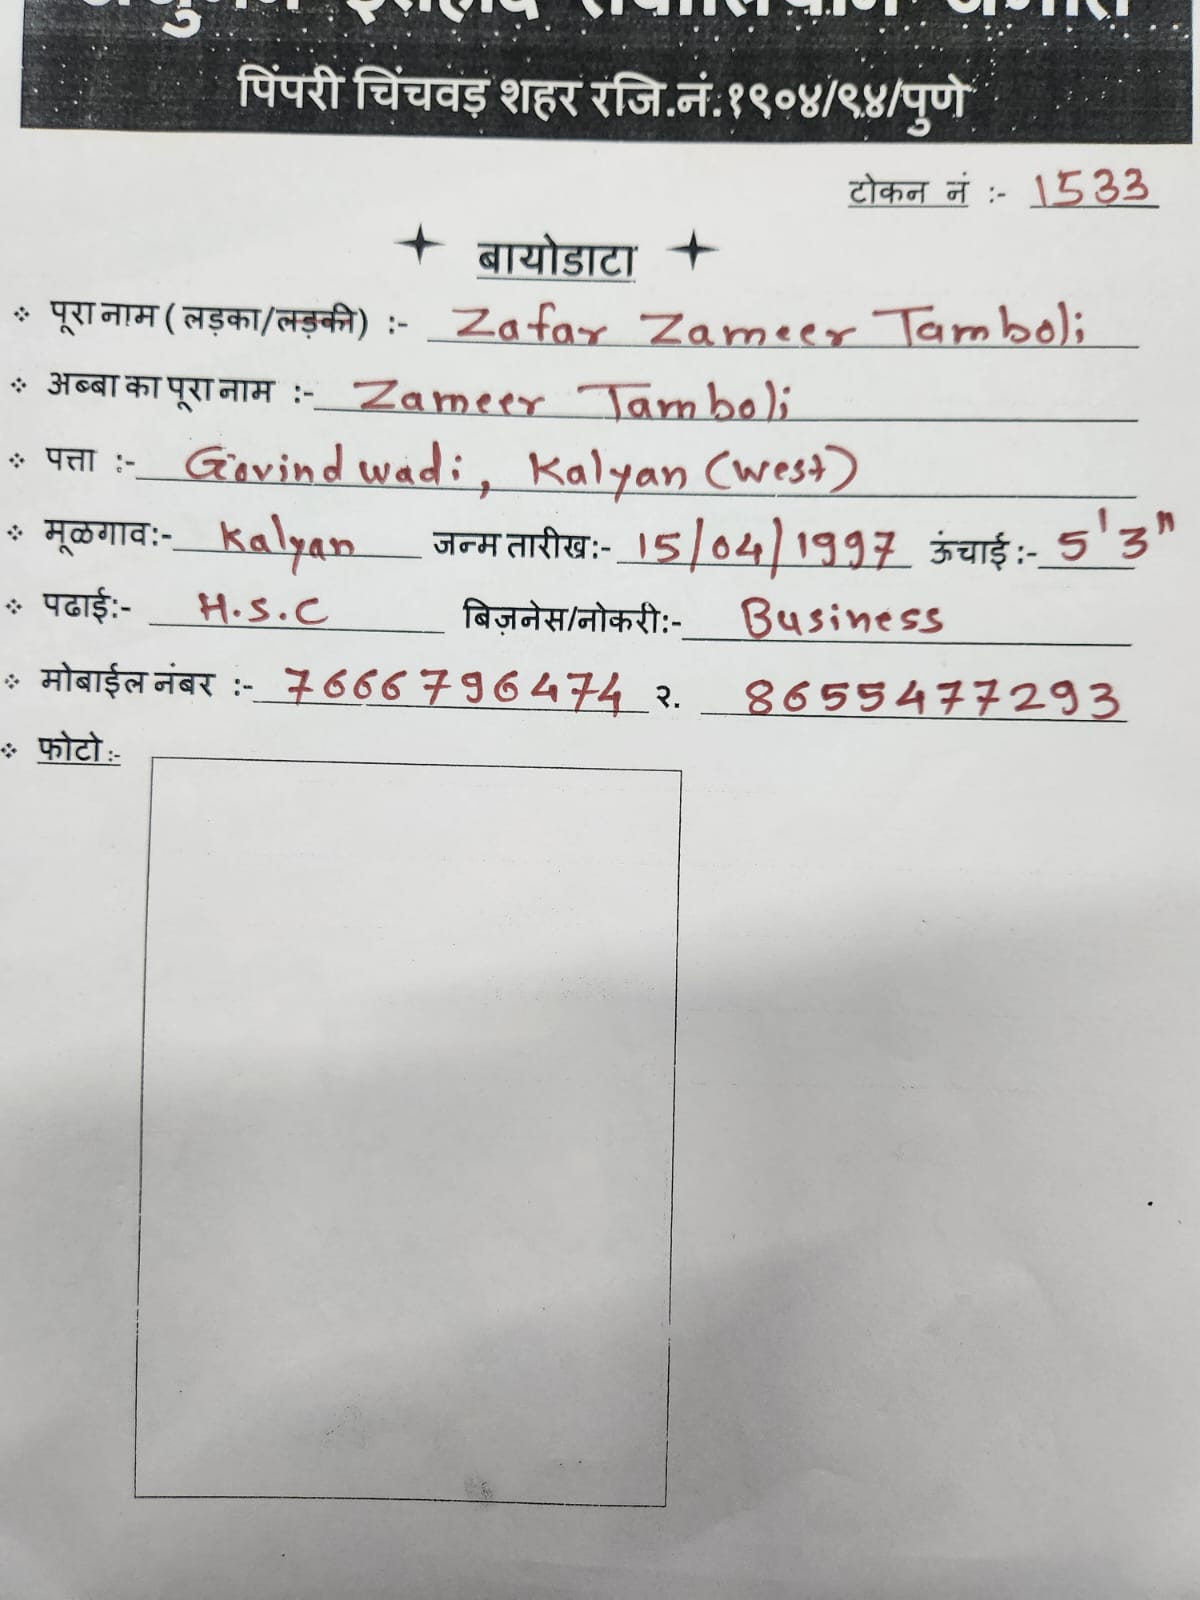 पिंपरी चिंचवड़ शहर रजि.नं.१९०४/९४/पुणे
टोकन नं :- 1533
बायोडाटा
पूरा नाम ( लड़का/लड़की) :- Zafar Zameer Tamboli
अब्बा का पूरा नाम :- Zameer Tamboli
पत्ता :- Govind wadi, Kalyan (west)
मूळगाव:- Kalyan जन्म तारीख:- 15/04/1997 ऊंचाई :- 5'3"
पढाई:- H.S.C बिज़नेस/नोकरी:- Business
मोबाईल नंबर :- 7666796474 २. 8655477293
फोटो :-